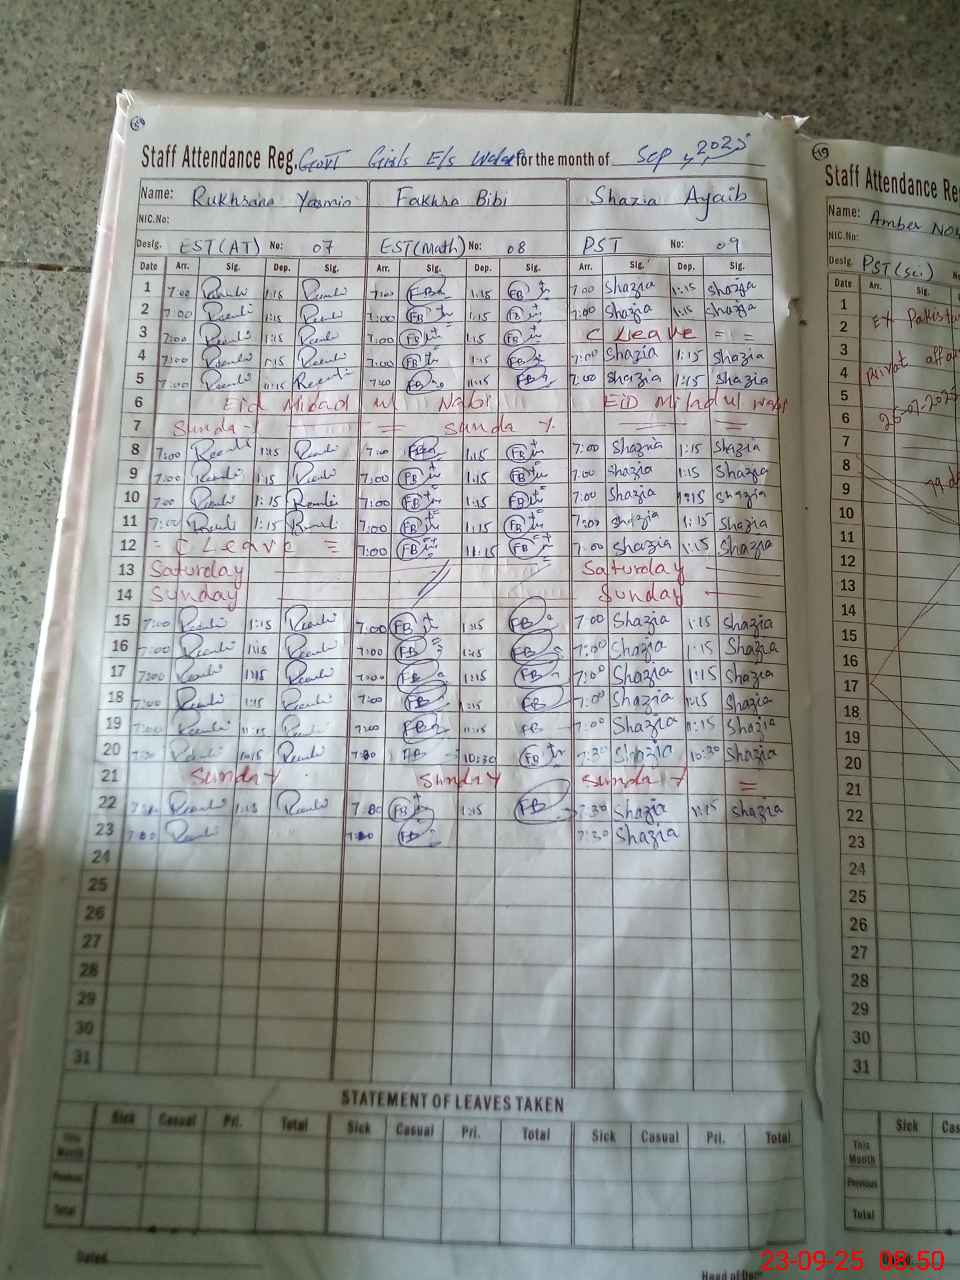 59
Staff Attendance Reg. Govt Girls E/S for the month of Sep, 2025
Name: Rukhsana Yasmin Fakhra Bibi Shazia Ayaib
NIC.No:
Desig. EST (AT) No: 07 EST (Math) No: 08 PST No: 09
Date Arr. Sig. Dep. Sig. Arr. Sig. Dep. Sig. Arr. Sig. Dep. Sig.
1 7:00 1:15 7:00 FB 1:15 FB 7:00 Shazia 1:15 Shazia
2 7:00 1:15 7:00 FB 1:15 FB 7:00 Shazia 1:15 Shazia
3 7:00 1:15 7:00 FB 1:15 FB C Leave = =
4 7:00 1:15 7:00 FB 1:15 FB 7:00 Shazia 1:15 Shazia
5 7:00 11:15 7:00 FB 11:15 FB 7:00 Shazia 1:15 Shazia
6 Eid Milad ul Nabi EiD Milad ul Nabi
7 Sunday = Sunday =
8 7:00 1:15 7:00 FB 1:15 FB 7:00 Shazia 1:15 Shazia
9 7:00 1:15 7:00 FB 1:15 FB 7:00 Shazia 1:15 Shazia
10 7:00 1:15 7:00 FB 1:15 FB 7:00 Shazia 1:15 Shazia
11 7:00 1:15 7:00 FB 1:15 FB 7:00 Shazia 1:15 Shazia
12 = C Leave = 7:00 FB 11:15 FB 7:00 Shazia 1:15 Shazia
13 Saturday Saturday
14 Sunday Sunday
15 7:00 1:15 7:00 FB 1:15 FB 7:00 Shazia 1:15 Shazia
16 7:00 1:15 7:00 FB 1:15 FB 7:00 Shazia 1:15 Shazia
17 7:00 1:15 7:00 FB 1:15 FB 7:00 Shazia 1:15 Shazia
18 7:00 1:15 7:00 FB 1:15 FB 7:00 Shazia 1:15 Shazia
19 7:00 11:15 7:00 FB 11:15 FB 7:00 Shazia 11:15 Shazia
20 7:30 7:30 FB 10:30 FB 7:30 Shazia 10:30 Shazia
21 Sunday Sunday Sunday =
22 1:15 7:00 FB 1:15 FB 7:30 Shazia 1:15 Shazia
23 7:00 FB 7:30 Shazia
24
25
26
27
28
29
30
31
STATEMENT OF LEAVES TAKEN
Sick Casual Pri. Total Sick Casual Pri. Total Sick Casual Pri. Total
This Month
Previous
Total
Dated
Head of De
Staff Attendance Re
Name: Amber
NIC.No:
Desig. PST (Sci)
Date Arr. Sig.
1
2 Ex Pakistan
3
4
5
6
7
8
9
10
11
12
13
14
15
16
17
18
19
20
21
22
23
24
25
26
27
28
29
30
31
Sick Cas
This Month
Previous
Total
23-09-25 08:50